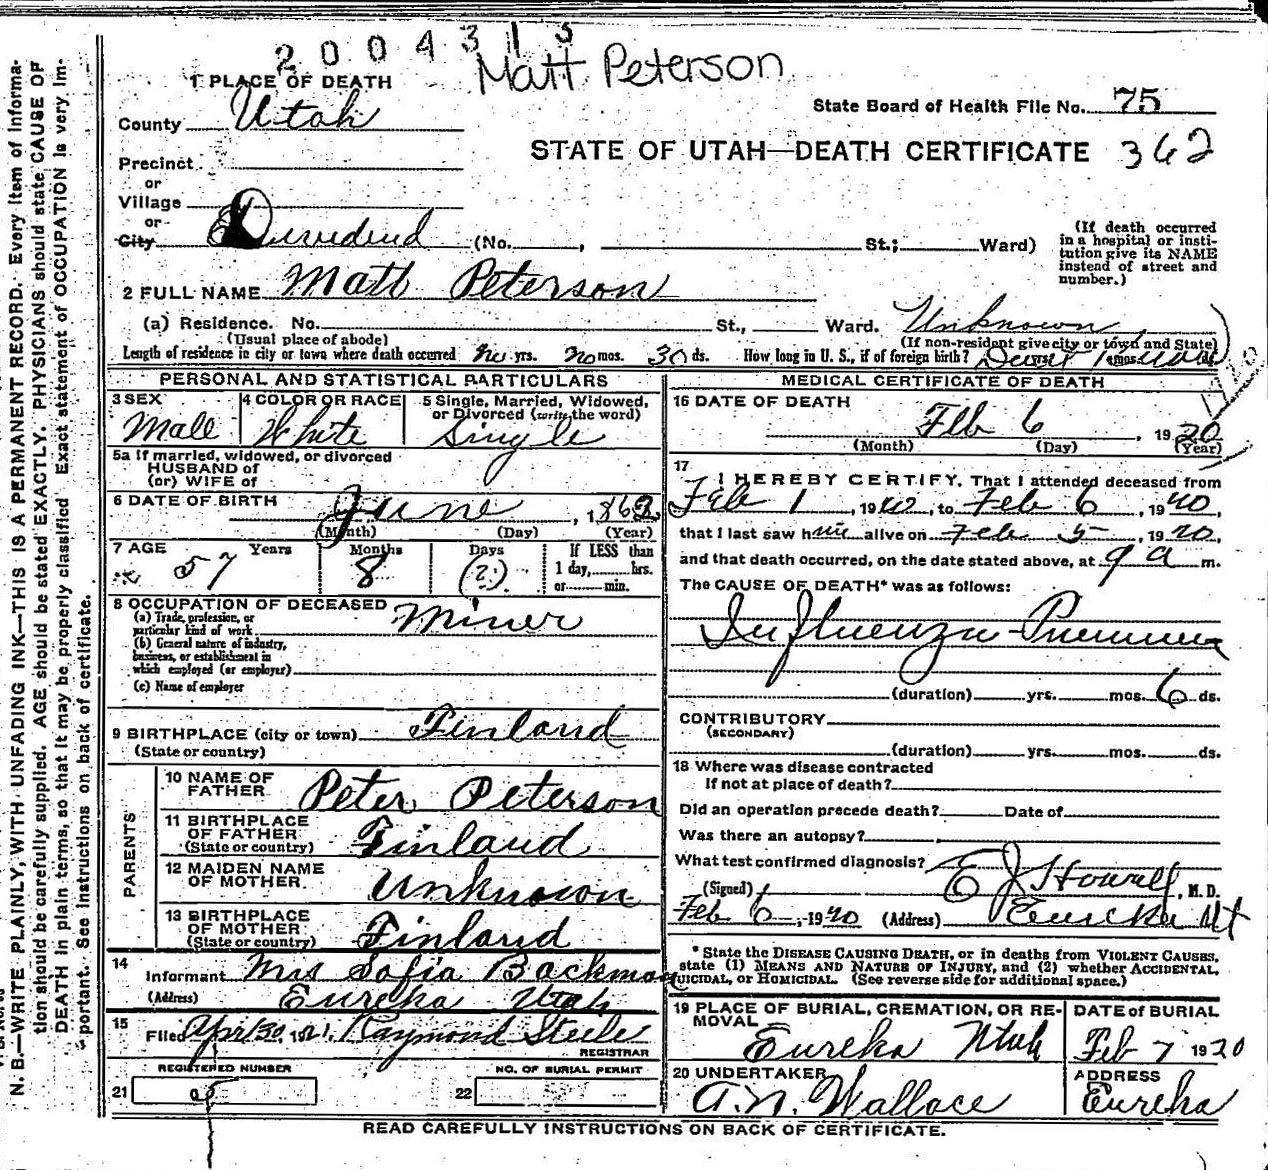 2004315
Matt Peterson
1 PLACE OF DEATH
State Board of Health File No. 75
County Utah
STATE OF UTAH—DEATH CERTIFICATE 362
Precinct
or
Village
or
City Dividend (No. , St.; Ward)
(If death occurred in a hospital or institution give its NAME instead of street and number.)
2 FULL NAME Matt Peterson
(a) Residence. No. St., Ward. Unknown
(Usual place of abode) (If non-resident give city or town and State)
Length of residence in city or town where death occurred No yrs. No mos. 30 ds. How long in U. S., if of foreign birth? Don't Know
1920
PERSONAL AND STATISTICAL PARTICULARS
3 SEX Male
4 COLOR OR RACE White
5 Single, Married, Widowed, or Divorced (write the word) Single
5a If married, widowed, or divorced
HUSBAND of
(or) WIFE of
6 DATE OF BIRTH June , 1862
(Month) (Day) (Year)
7 AGE 57 Years 8 Months (?) Days If LESS than 1 day, hrs. or min.
8 OCCUPATION OF DECEASED Miner
(a) Trade, profession, or particular kind of work
(b) General nature of industry, business, or establishment in which employed (or employer)
(c) Name of employer
9 BIRTHPLACE (city or town) Finland
(State or country)
PARENTS
10 NAME OF FATHER Peter Peterson
11 BIRTHPLACE OF FATHER Finland
(State or country)
12 MAIDEN NAME OF MOTHER Unknown
13 BIRTHPLACE OF MOTHER Finland
(State or country)
14 Informant Mrs Sofia Backman
(Address) Eureka Utah
15 Filed Apr 30, 1921. Raymond Steele
REGISTRAR
REGISTERED NUMBER
21
NO. OF BURIAL PERMIT
22
MEDICAL CERTIFICATE OF DEATH
16 DATE OF DEATH
Feb 6 , 1920
(Month) (Day) (Year)
17 I HEREBY CERTIFY, That I attended deceased from
Feb 1 , 1920, to Feb 6 , 1920,
that I last saw him alive on Feb 5 , 1920,
and that death occurred, on the date stated above, at 9 a m.
The CAUSE OF DEATH* was as follows:
Influenza-Pneumonia
(duration) yrs. mos. 6 ds.
CONTRIBUTORY
(SECONDARY)
(duration) yrs. mos. ds.
18 Where was disease contracted
If not at place of death?
Did an operation precede death? Date of
Was there an autopsy?
What test confirmed diagnosis?
(Signed) E J Howell, M. D.
Feb 6, 1920 (Address) Eureka Ut
*State the DISEASE CAUSING DEATH, or in deaths from VIOLENT CAUSES, state (1) MEANS AND NATURE OF INJURY, and (2) whether ACCIDENTAL, SUICIDAL, or HOMICIDAL. (See reverse side for additional space.)
19 PLACE OF BURIAL, CREMATION, OR REMOVAL Eureka Utah
DATE of BURIAL Feb 7 1920
20 UNDERTAKER A. N. Wallace
ADDRESS Eureka
READ CAREFULLY INSTRUCTIONS ON BACK OF CERTIFICATE.
N. B.—WRITE PLAINLY, WITH UNFADING INK—THIS IS A PERMANENT RECORD. Every item of informa-
tion should be carefully supplied. AGE should be stated EXACTLY. PHYSICIANS should state CAUSE OF
DEATH in plain terms, so that it may be properly classified. Exact statement of OCCUPATION is very im-
portant. See instructions on back of certificate.